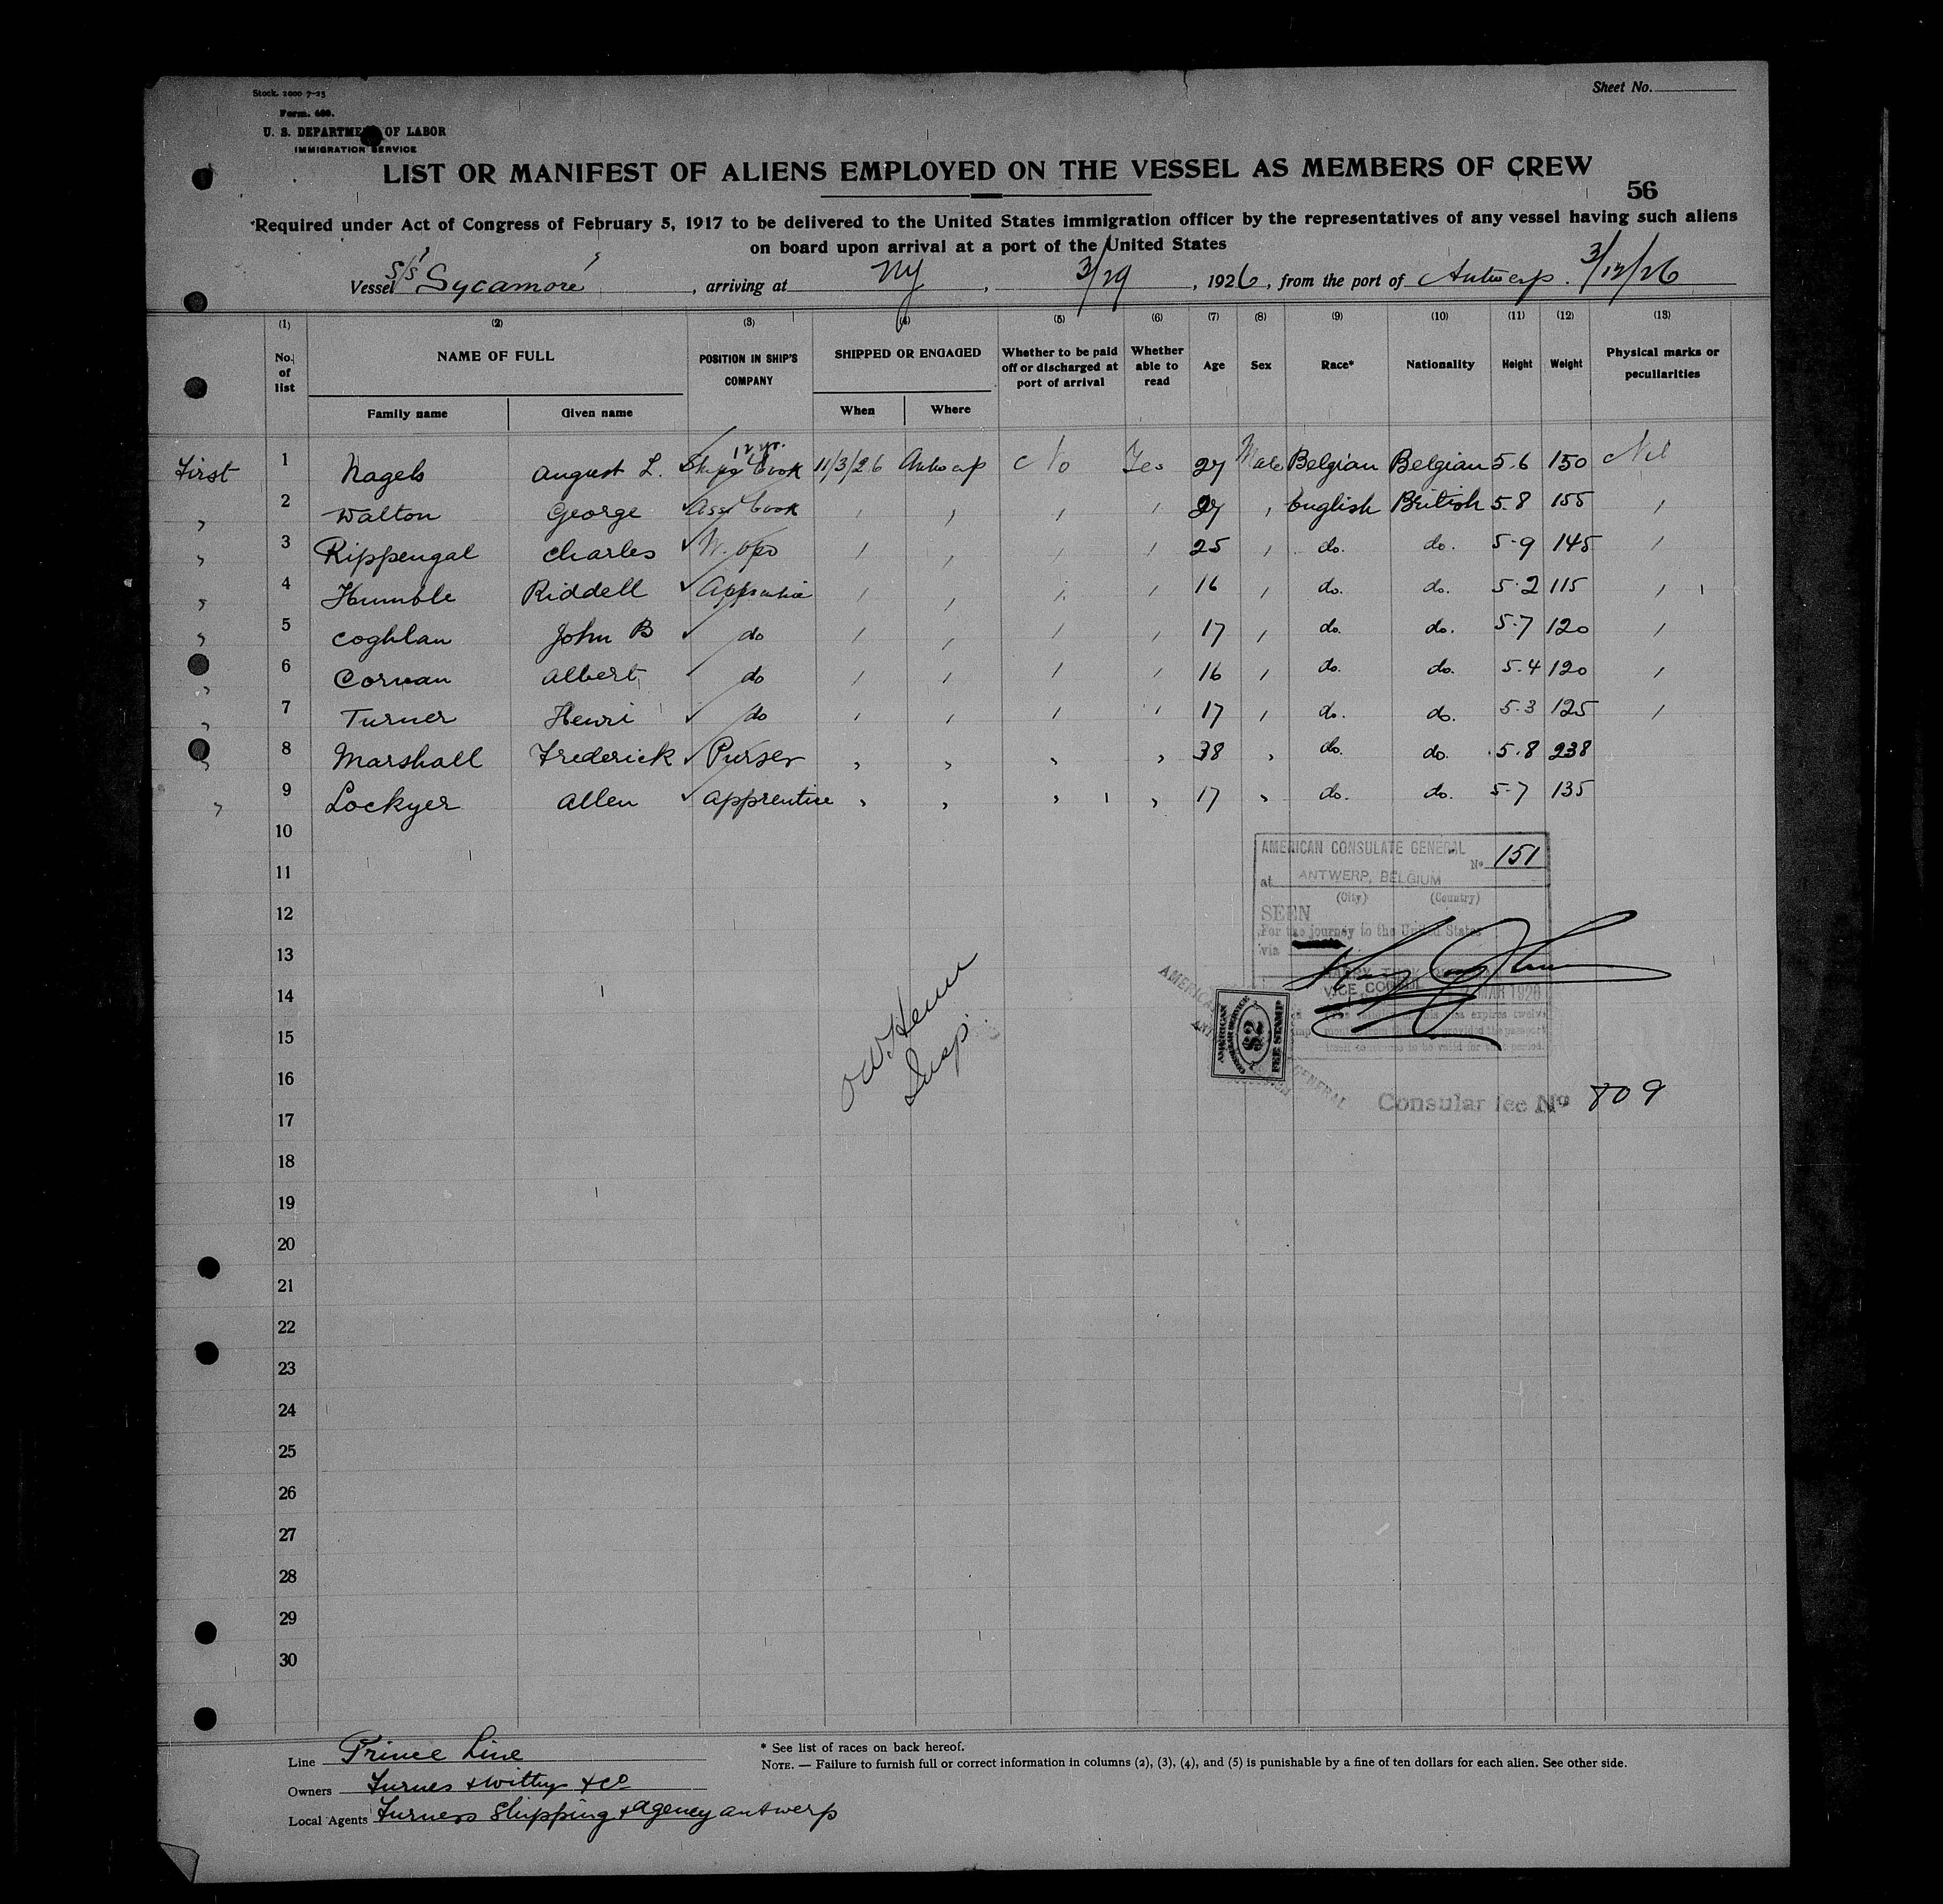 Stock. 2000 7-23
Form. 680.
U. S. DEPARTMENT OF LABOR
IMMIGRATION SERVICE
Sheet No.
LIST OR MANIFEST OF ALIENS EMPLOYED ON THE VESSEL AS MEMBERS OF CREW
56
Required under Act of Congress of February 5, 1917 to be delivered to the United States immigration officer by the representatives of any vessel having such aliens
on board upon arrival at a port of the United States
Vessel S/S "Sycamore", arriving at NY, 3/29, 1926, from the port of Antwerp. 3/12/26
(1) (2) (3) (4) (5) (6) (7) (8) (9) (10) (11) (12) (13)
No. of list NAME OF FULL POSITION IN SHIP'S COMPANY SHIPPED OR ENGAGED Whether to be paid off or discharged at port of arrival Whether able to read Age Sex Race* Nationality Height Weight Physical marks or peculiarities
Family name Given name When Where
First 1 Nagels August L. Ships Cook 12 yr. 11/3/26 Antwerp No Yes 27 Male Belgian Belgian 5.6 150 Nil
" 2 Walton George Asst Cook " " " " 27 " English British 5.8 155 "
" 3 Rippengal Charles W. Opo " " " " 25 " do. do. 5.9 145 "
" 4 Humble Riddell Apprentice " " " " 16 " do. do. 5.2 115 "
" 5 Coghlan John B do " " " " 17 " do. do. 5.7 120 "
" 6 Corvan Albert do " " " " 16 " do. do. 5.4 120 "
" 7 Turner Henri do " " " " 17 " do. do. 5.3 125 "
" 8 Marshall Frederick Purser " " " " 38 " do. do. 5.8 238
" 9 Lockyer Allen Apprentice " " " " 17 " do. do. 5.7 135
10
11
12
13
14
15
16
17
18
19
20
21
22
23
24
25
26
27
28
29
30
AMERICAN CONSULATE GENERAL
No 151
at ANTWERP, BELGIUM
(City) (Country)
SEEN
For the journey to the United States
via
VICE CONSUL
MAR 1926
AMERICAN
CONSULAR SERVICE
$2
FEE STAMP
Consular fee No 809
Insp.
Line Prince Line
Owners Furness Withy & Co
Local Agents Furness Shipping & Agency Antwerp
* See list of races on back hereof.
NOTE. — Failure to furnish full or correct information in columns (2), (3), (4), and (5) is punishable by a fine of ten dollars for each alien. See other side.